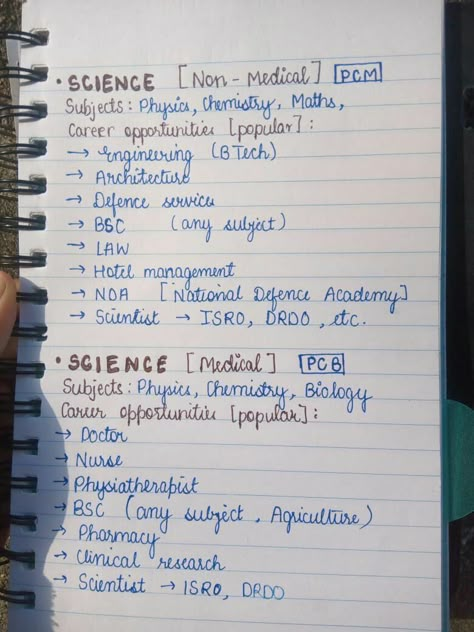 • SCIENCE [Non-Medical] PCM
Subjects: Physics, Chemistry, Maths,
Career opportunities [popular]:
→ Engineering (BTech)
→ Architecture
→ Defence services
→ BSC (any subject)
→ LAW
→ Hotel management
→ NDA [National Defence Academy]
→ Scientist → ISRO, DRDO, etc.
• SCIENCE [Medical] PCB
Subjects: Physics, Chemistry, Biology
Career opportunities [popular]:
→ Doctor
→ Nurse
→ Physiatherapist
→ BSC (any subject, Agriculture)
→ Pharmacy
→ Clinical research
→ Scientist → ISRO, DRDO